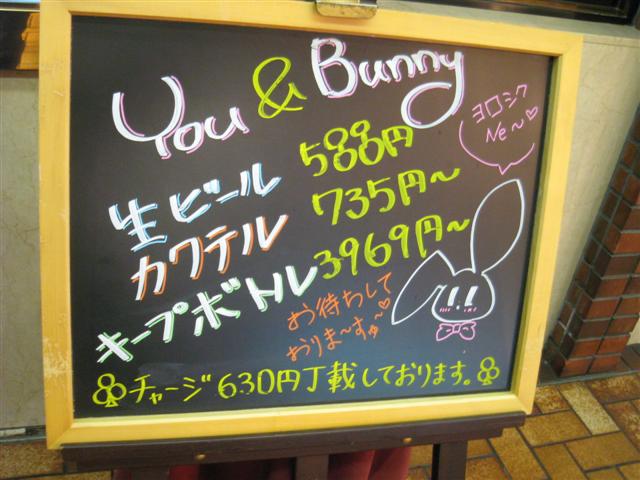 You & Bunny
ヨロシク
Ne～♡
生ビール 588円
カクテル 735円～
キープボトル 3969円～
お待ちして
おりま～すゅ～♡
♧チャージ630円丁載しております。♧